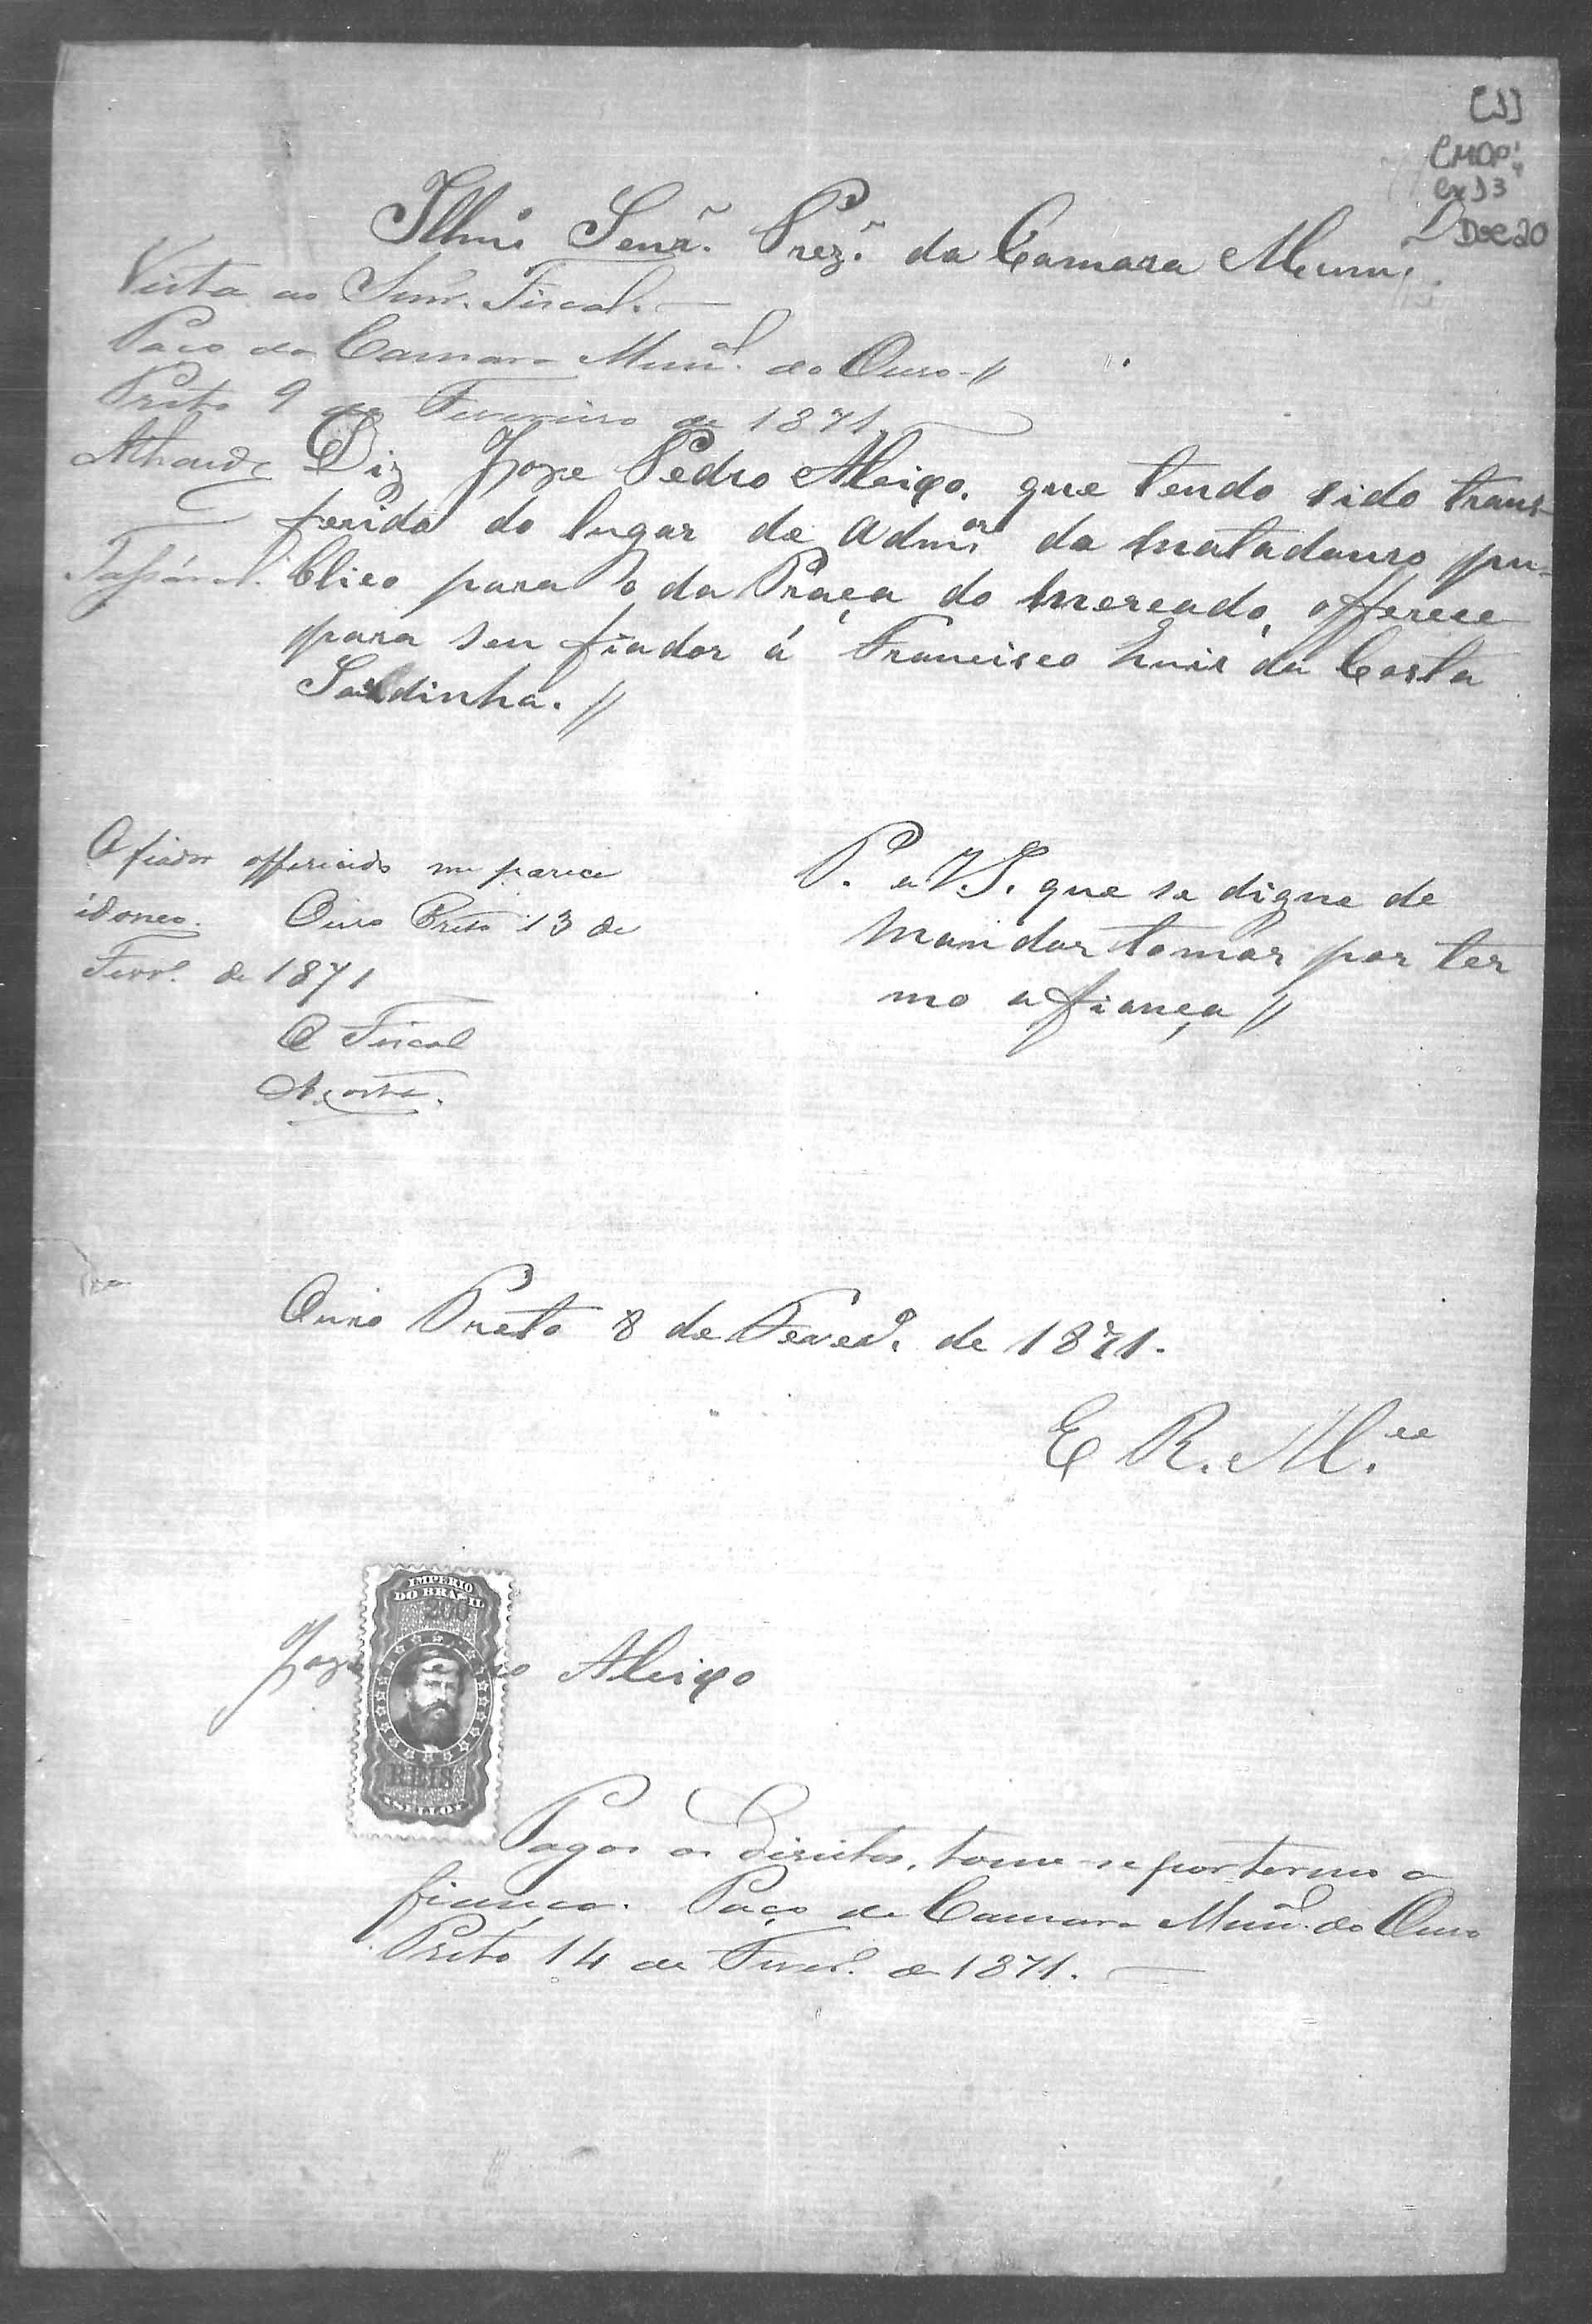 [1]
CMOP
cx 13
Doc 20
Illm.º Senr. Prez.e da Camara Mun.
Vista ao Snr. Fiscal.
Paço da Camara Mun.al do Ouro
Preto 9 de Fevereiro de 1871
Diz Joze Pedro Aleixo, que tendo sido trans-
ferido do lugar de Admor do Matadouro pu-
blico para o da Praça do Mercado, offerece
para seu fiador á Francisco Luis da Costa
Saldinha. //
P. a V.S. que se digne de
mandar tomar por ter
mo a fiança //
O fiador offerecido me parece
idoneo. Ouro Preto 13 de
Fevr.o de 1871
O Fiscal
Ouro Preto 8 de Fever.o de 1871.
E. R. M.ce
IMPERIO
DO BRASIL
200
REIS
SELLO
Joze Aleixo
Pagos os direitos, tome-se por termo a
fiança. Paço da Camara Mun.al do Ouro
Preto 14 de Fever.o de 1871.